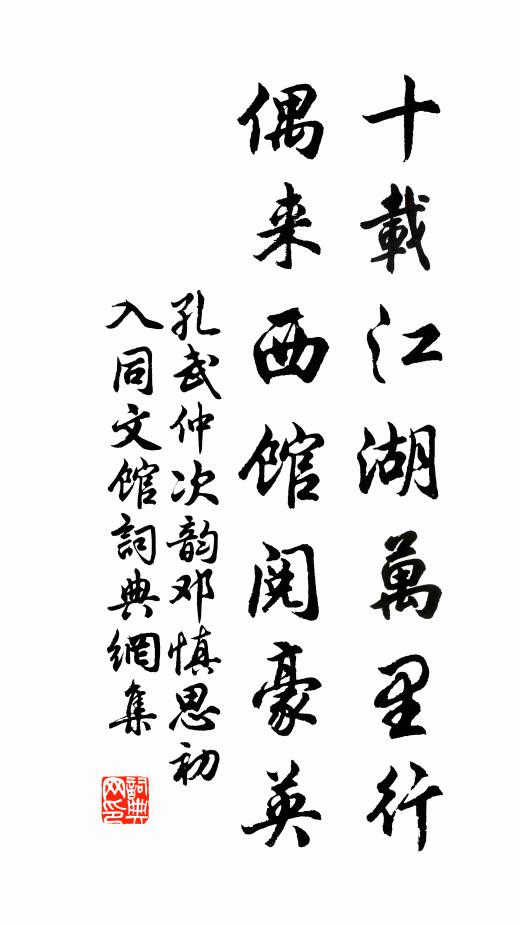 十載江湖萬里行
偶来西館閱豪英
孔武仲次韵邓慎思初
入同文館詞典網集
詞典网印